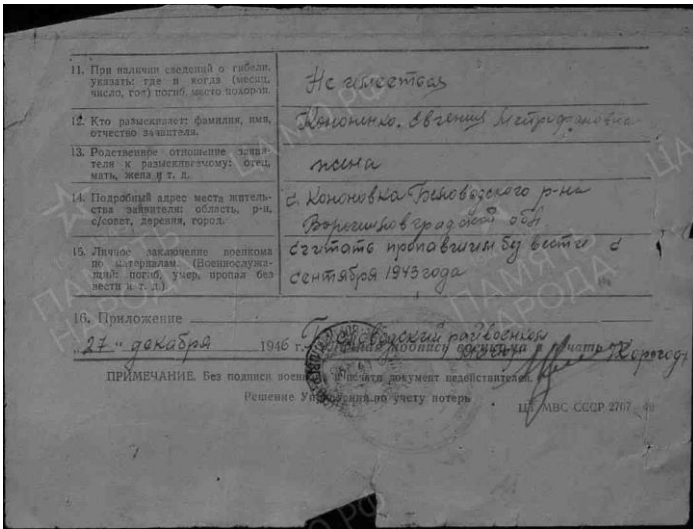 11. При наличии сведений о гибели,
указать: где и когда (месяц,
число, год) погиб, место похорон.
Не имеется
12. Кто разыскивает: фамилия, имя,
отчество заявителя.
Кононенко, Евгения Митрофановна
13. Родственное отношение заяви-
теля к разыскиваемому: отец,
мать, жена и т. д.
жена
14. Подробный адрес места житель-
ства заявителя: область, р-н,
с/совет, деревня, город.
с. Кононовка Беловодского р-на
Ворошиловградской обл
15. Личное заключение военкома
по материалам. (Военнослужа-
щий: погиб, умер, пропал без
вести и т. д.)
считать пропавшим без вести с
сентября 1943 года
16. Приложение
„27“ декабря 1946 г.
Беловодский райвоенком
подпись военкома
ПРИМЕЧАНИЕ. Без подписи военкома и печати документ недействителен.
Решение Управления по учету потерь
ЦТ МВС СССР 2707
ПАМЯТЬ
НАРОДА
ЦАМО РФ